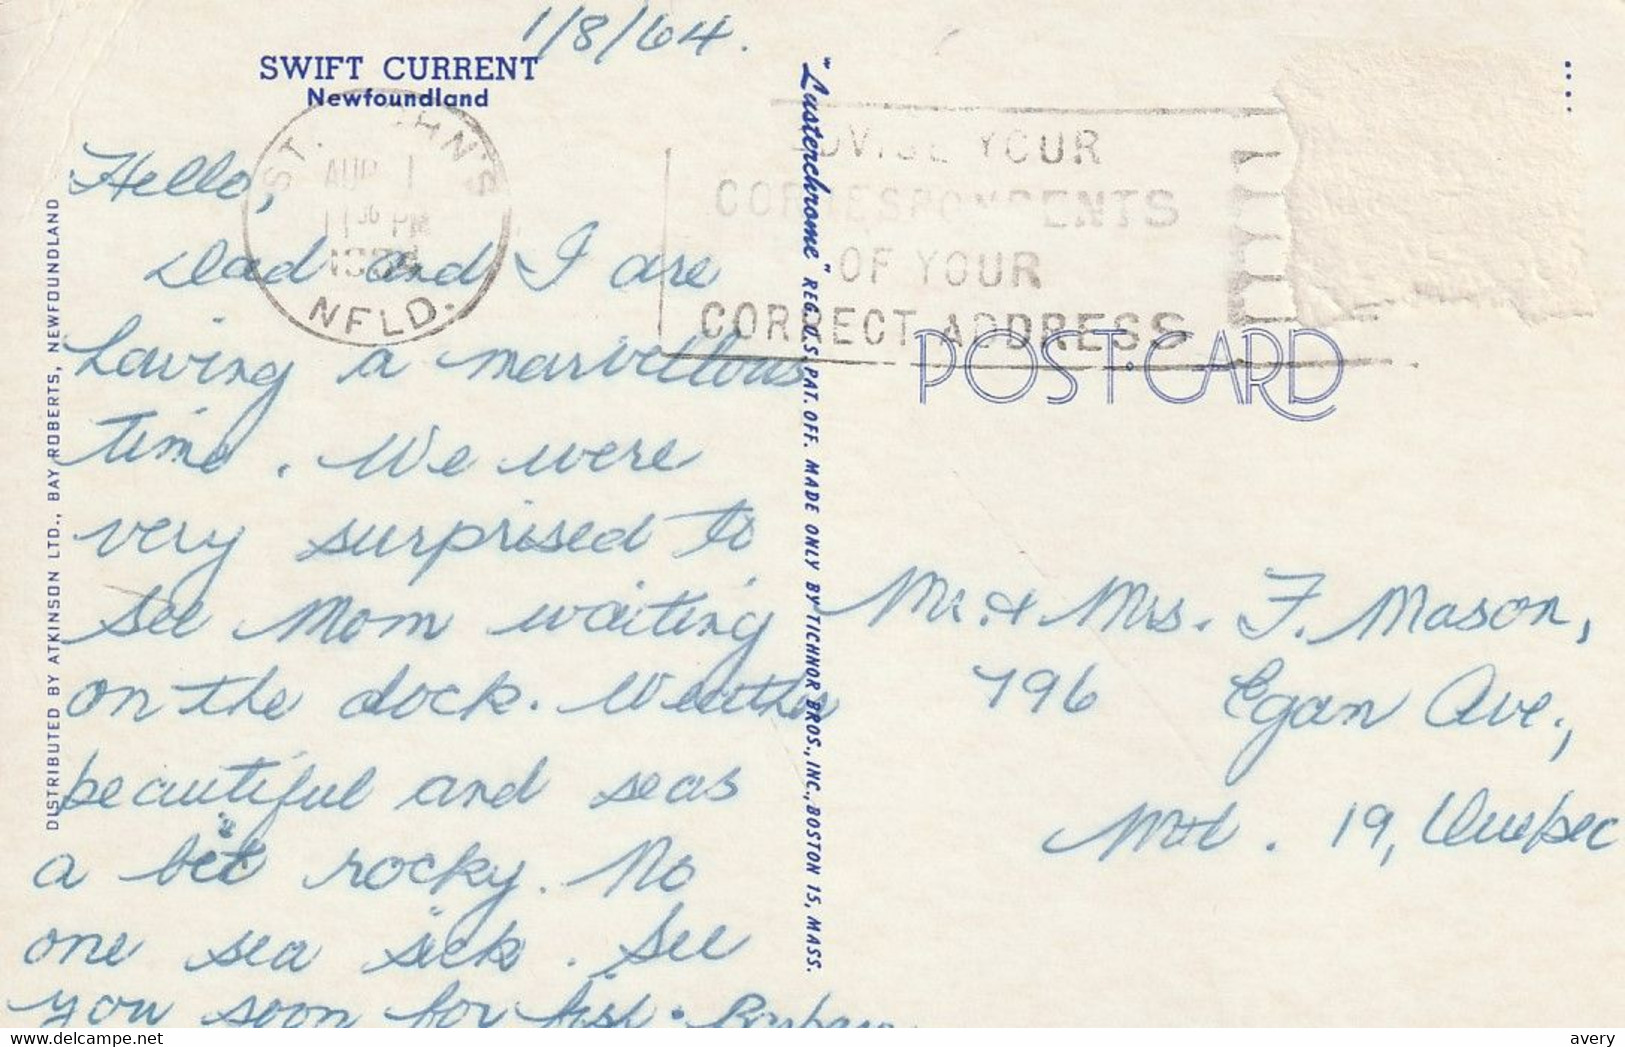 1/8/64.
SWIFT CURRENT
Newfoundland
ST. JOHN'S
AUG 1
11 30 PM
1964
NFLD.
ADVISE YOUR
CORRESPONDENTS
OF YOUR
CORRECT ADDRESS
POST CARD
Hello,
Dad and I are
having a marvellous
time. We were
very surprised to
see Mom waiting
on the dock. Weather
beautiful and seas
a bit rocky. No
one sea sick. See
you soon for fish. Barbara
Mr. & Mrs. F. Mason,
796 Egan Ave.,
Mtl. 19, Quebec
DISTRIBUTED BY ATKINSON LTD., BAY ROBERTS, NEWFOUNDLAND
"Lusterchrome" REG. U.S. PAT. OFF. MADE ONLY BY TICHNOR BROS., INC., BOSTON 15, MASS.
avery